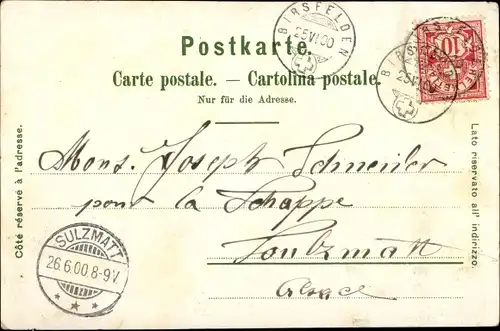 Postkarte.
Carte postale. — Cartolina postale.
Nur für die Adresse.
BIRSFELDEN
25 VI 00
BIRSFELDEN
25 VI
10
Mons. Joseph Schneider
pour la Schappe
Soultzmatt
Alsace
SULZMATT
26.6.00 8-9V.
Côté réservé à l'adresse.
Lato riservato all' indirizzo.